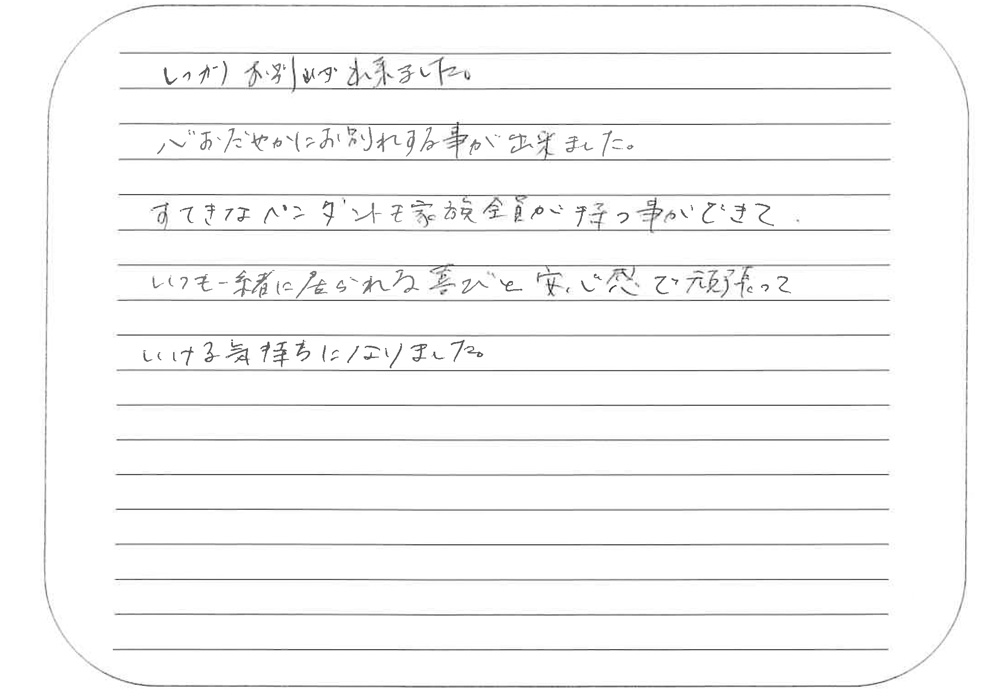 しっかりお別れが出来ました。
心おだやかにお別れする事が出来ました。
すてきなペンダントも家族全員が持つ事ができて、
いつも一緒に居られる喜びと安心感で頑張って
いける気持ちになりました。